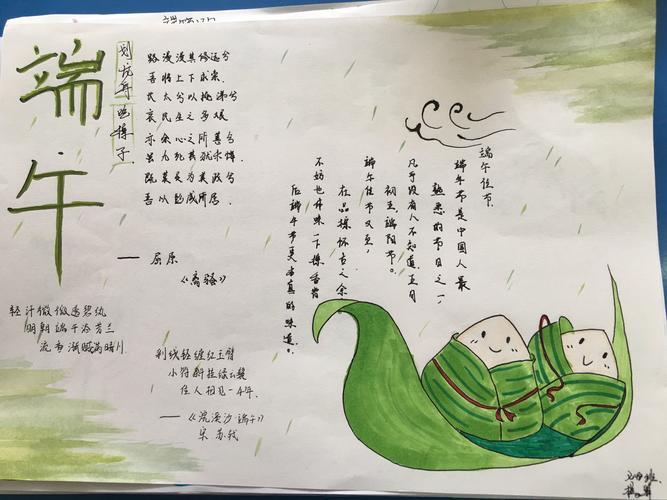 端午
划龙舟 吃棕子
路漫漫其修远兮
吾将上下求索
长太兮以掩涕兮
哀民生之多艰
亦余心之所善兮
虽九死其犹未悔
既莫足为美政兮
吾以
—— 屈原
《离骚》
轻汗微微透碧纨
明朝端午浴芳兰
流香涨腻满晴川
彩线轻缠红玉臂
小符斜挂绿云鬟
佳人相见一千年.
——《浣溪沙·端午》
宋 苏轼
端午佳节
端午节是中国人最
熟悉的节日之一，
几乎没有人不知道五月
初五，端阳节。
端午佳节又至，
在品棕怀古之余
不妨也并味一下
后端午节更
的味道。